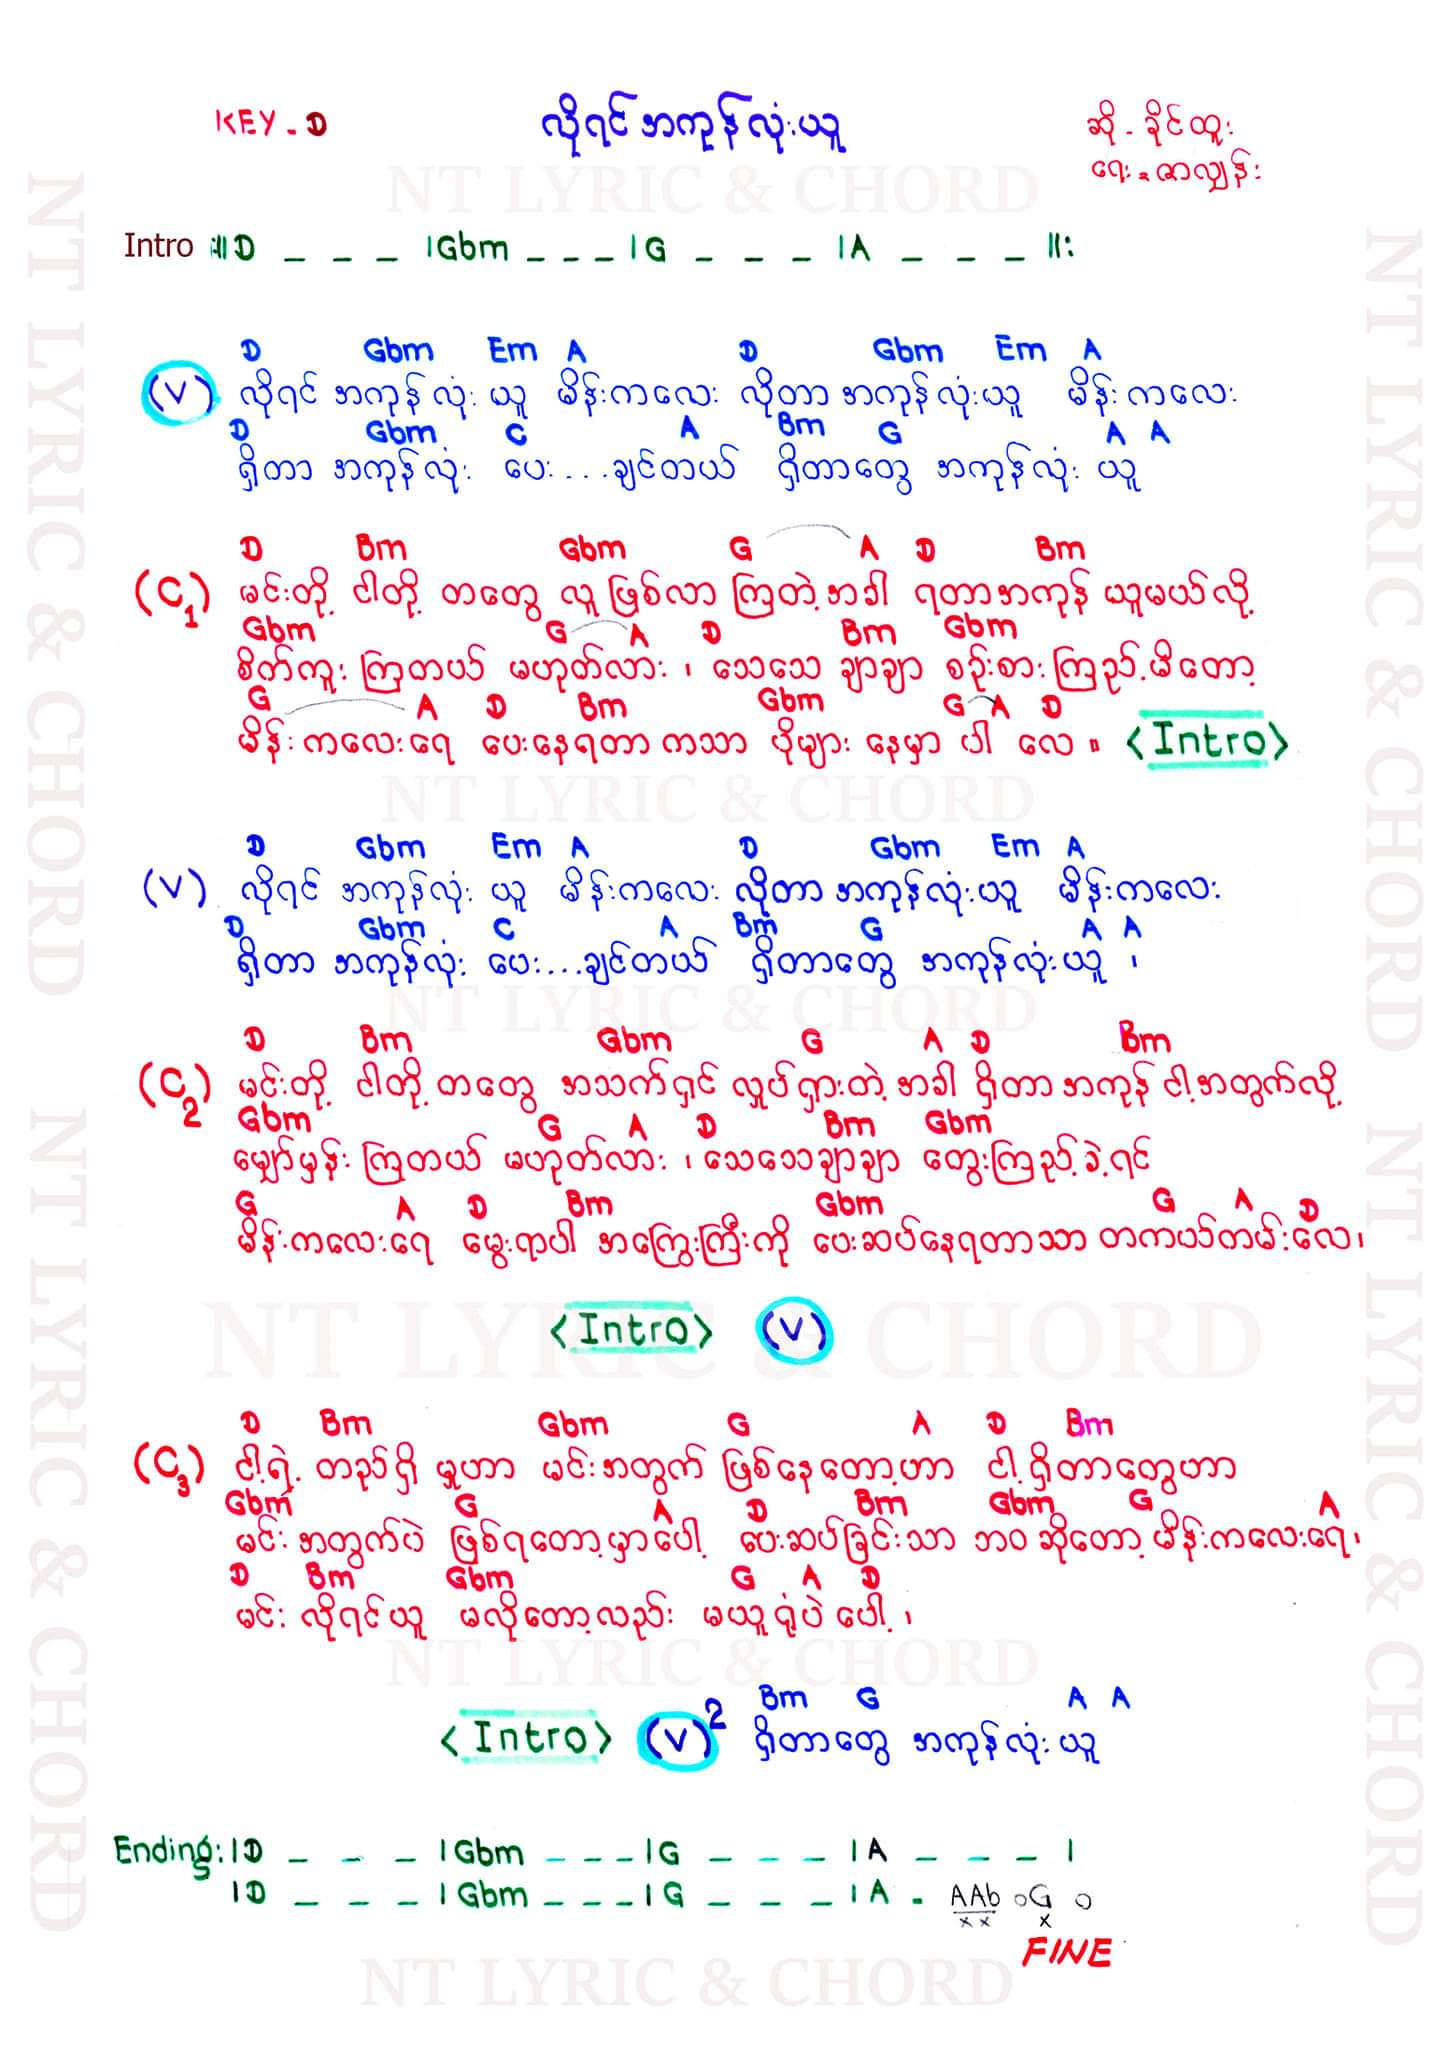 KEY - D
လိုရင်အကုန်လုံးယူ
ဆို - ခိုင်ထူး
ရေး = ဇာလျှန်း
NT LYRIC & CHORD
Intro :‖ D _ _ _ | Gbm _ _ _ | G _ _ _ | A _ _ _ ‖:
D Gbm Em A D Gbm Em A
(V) လိုရင် အကုန်လုံး ယူ မိန်းကလေး လိုတာ အကုန်လုံးယူ မိန်းကလေး
D Gbm C A Bm G A A
ရှိတာ အကုန်လုံး ပေး...ချင်တယ် ရှိတာတွေ အကုန်လုံး ယူ
D Bm Gbm G A D Bm
(C1) မင်းတို့ ငါတို့ တတွေ လူဖြစ်လာ ကြတဲ့အခါ ရတာအကုန် ယူမယ်လို့
Gbm G A D Bm Gbm
စိတ်ကူးကြတယ် မဟုတ်လား ၊ သေသေ ချာချာ စဉ်းစားကြည့်မိတော့
G A D Bm Gbm G A D
မိန်းကလေးရေ ပေးနေရတာ ကသာ ပိုများ နေမှာ ပါ လေ ။ <Intro>
NT LYRIC & CHORD
D Gbm Em A D Gbm Em A
(V) လိုရင် အကုန်လုံး ယူ မိန်းကလေး လိုတာ အကုန်လုံးယူ မိန်းကလေး
D Gbm C A Bm G A A
ရှိတာ အကုန်လုံး ပေး...ချင်တယ် ရှိတာတွေ အကုန်လုံးယူ ၊
NT LYRIC & CHORD
D Bm Gbm G A D Bm
(C2) မင်းတို့ ငါတို့ တတွေ အသက်ရှင် လှုပ်ရှားတဲ့အခါ ရှိတာအကုန် ငါ့အတွက်လို့
Gbm G A D Bm Gbm
မျှော်မှန်းကြတယ် မဟုတ်လား ၊ သေသေချာချာ တွေးကြည့်ခဲ့ရင်
G A D Bm Gbm G A D
မိန်းကလေးရေ မွေးရာပါ အကြွေးကြီးကို ပေးဆပ်နေရတာသာ တကယ်တမ်းလေ၊
<Intro> (V)
NT LYRIC & CHORD
D Bm Gbm G A D Bm
(C3) ငါ့ရဲ့ တည်ရှိ မှုဟာ မင်းအတွက် ဖြစ်နေတော့ဟာ ငါ့ရှိတာတွေဟာ
Gbm G A D Bm Gbm G A
မင်းအတွက်ပဲ ဖြစ်ရတော့မှာပေါ့ ပေးဆပ်ခြင်းသာ ဘဝ ဆိုတော့ မိန်းကလေးရေ၊
D Bm Gbm G A D
မင်း လိုရင်ယူ မလိုတော့လည်း မယူရုံပဲ ပေါ့ ၊
NT LYRIC & CHORD
Bm G A A
<Intro> (V)2 ရှိတာတွေ အကုန်လုံး ယူ
Ending: | D _ _ _ | Gbm _ _ _ | G _ _ _ | A _ _ _ |
| D _ _ _ | Gbm _ _ _ | G _ _ _ | A - AAb o G o
x x x
FINE
NT LYRIC & CHORD
NT LYRIC & CHORD
NT LYRIC & CHORD
NT LYRIC & CHORD
NT LYRIC & CHORD